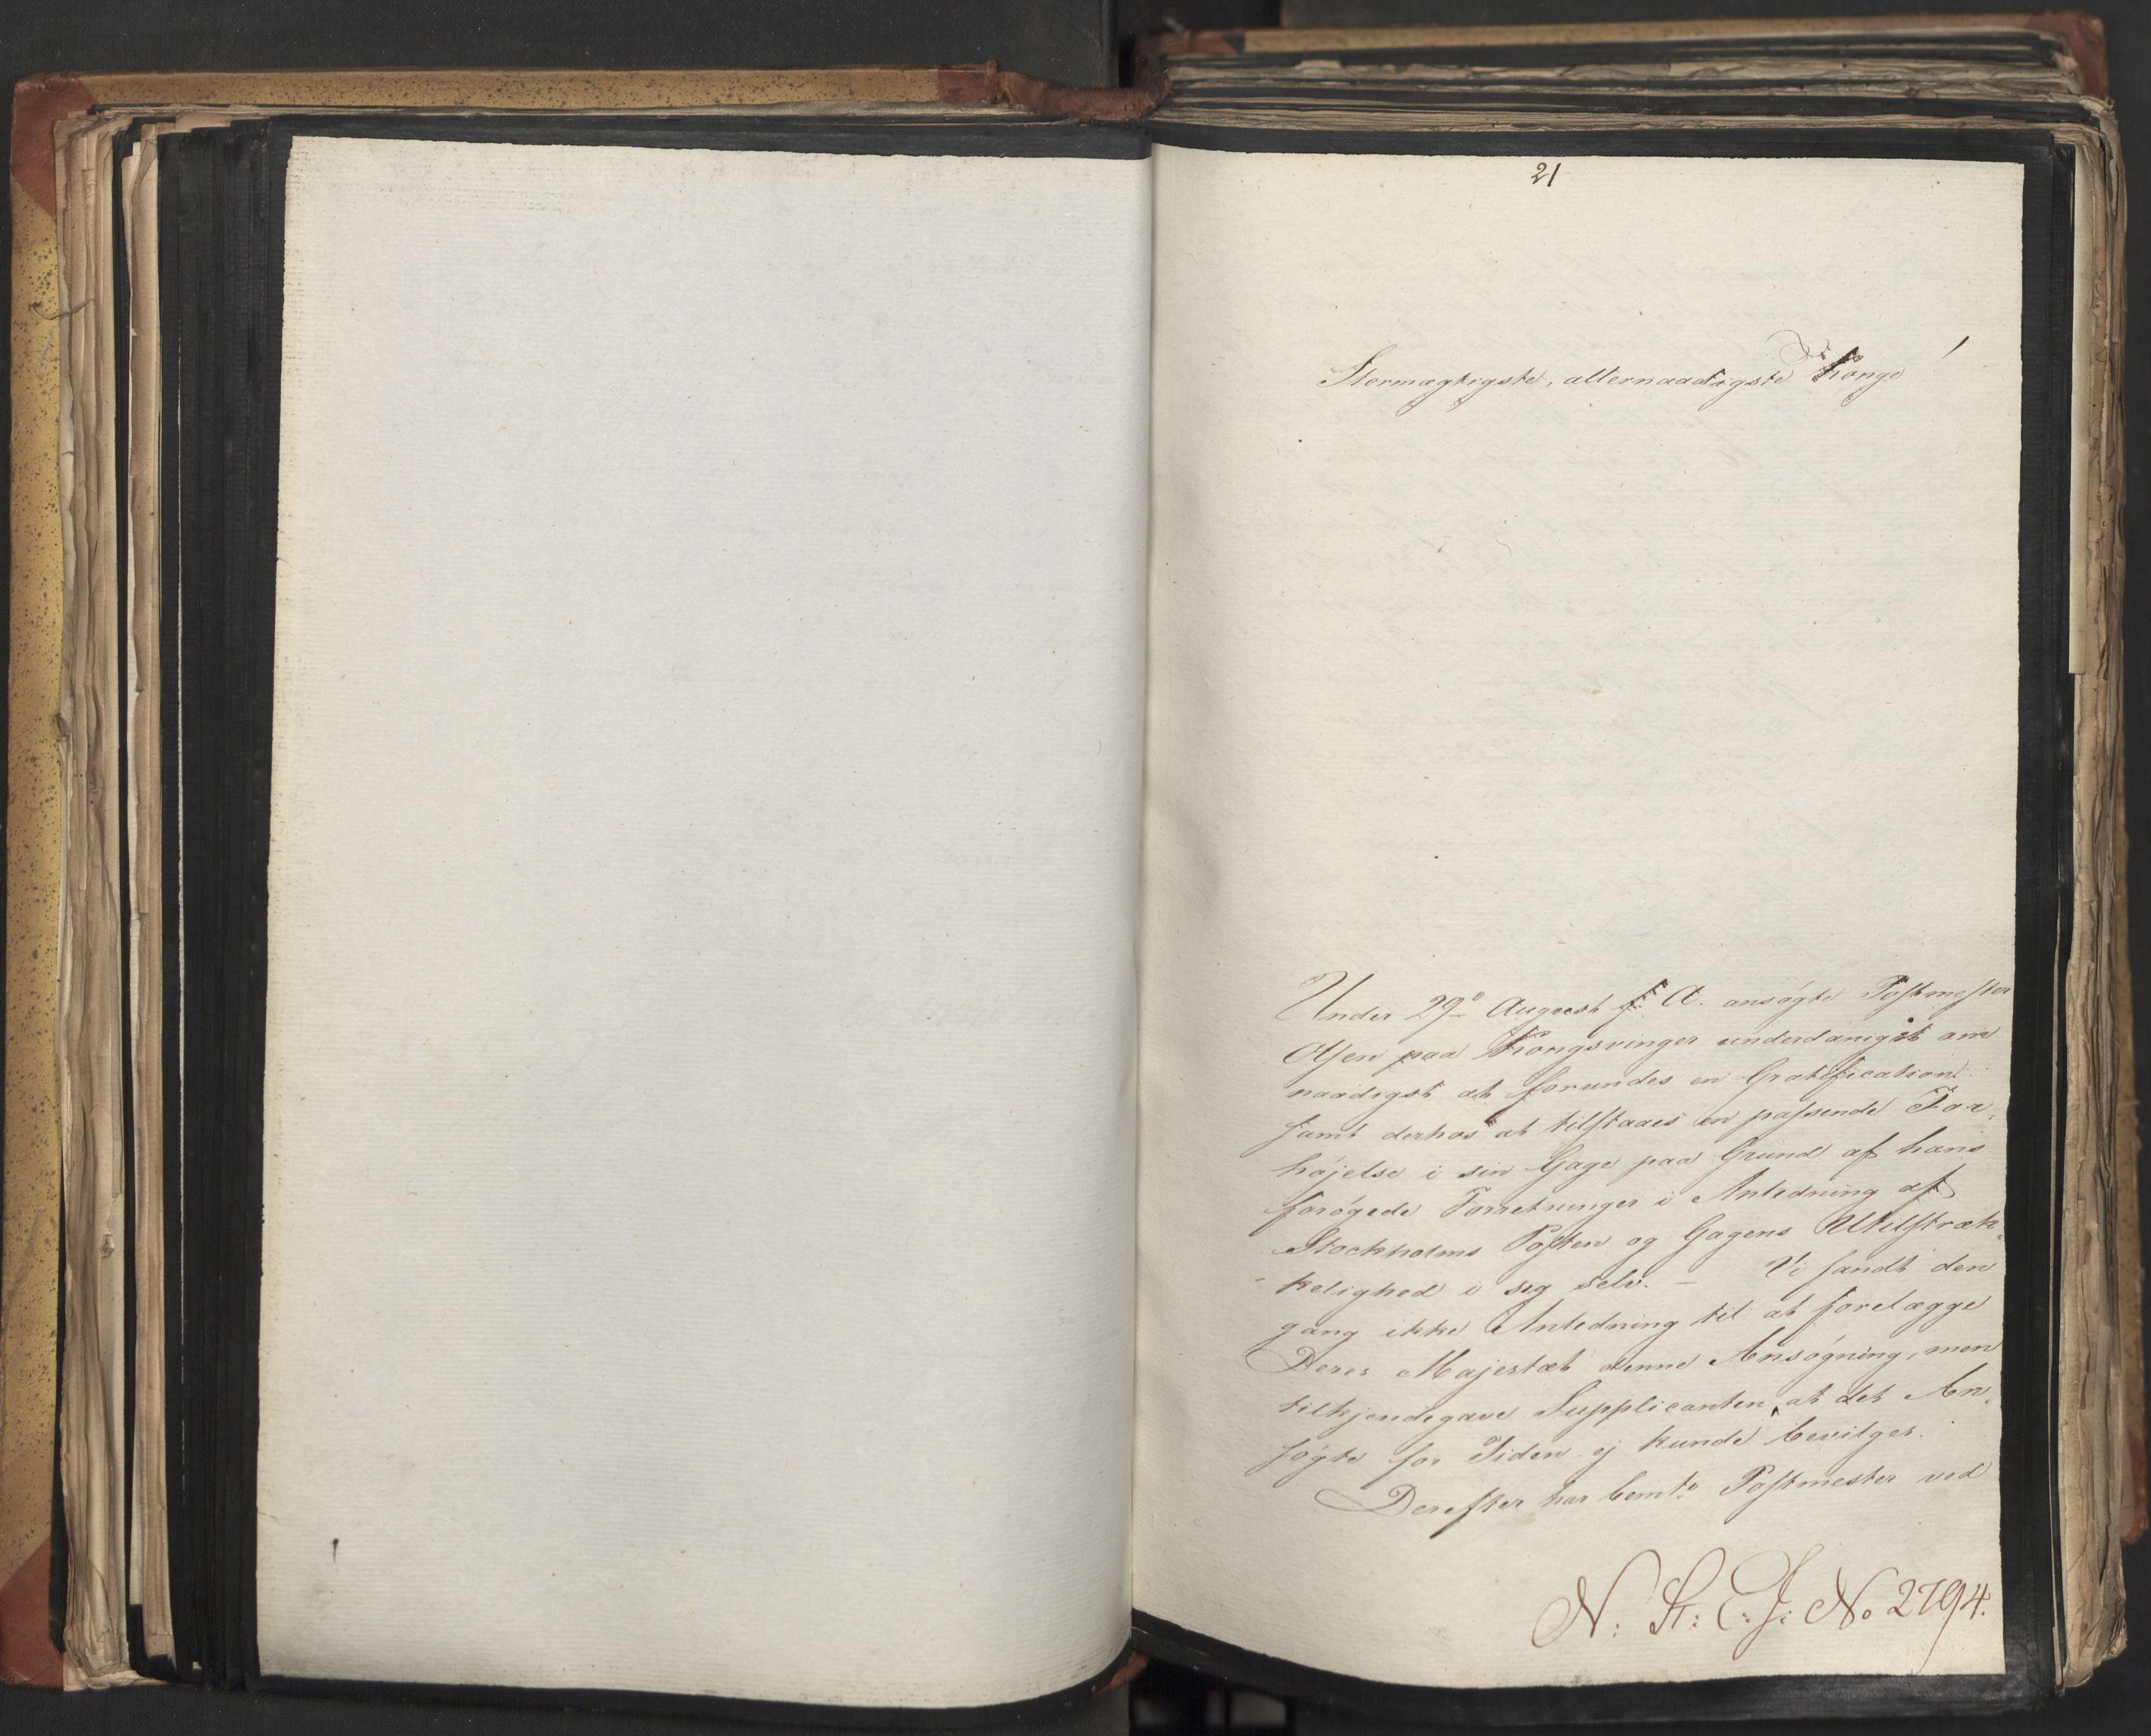 21
Stormægtigste, allernaadigste Konge!
Under 29de August f: A. ansøgte Postmester
Olsen paa Kongsvinger underdanigst om
naadigst at forundes en Gratification
samt derhos at tilstaaes en passende For-
højelse i sin Gage paa Grund af hans
forøgede Forretninger i Anledning af
Stockholms Posten og Gagens Utilstræk-
kelighed i sig selv. – Vi fandt den
gang ikke Anledning til at forelægge
Deres Majestæt denne Ansøgning, men
tilkjendegave Supplicanten, at det An-
søgte for Tiden ej kunde bevilges.
Derefter har bemte Postmester ved
N: St: E: J: No 2794.